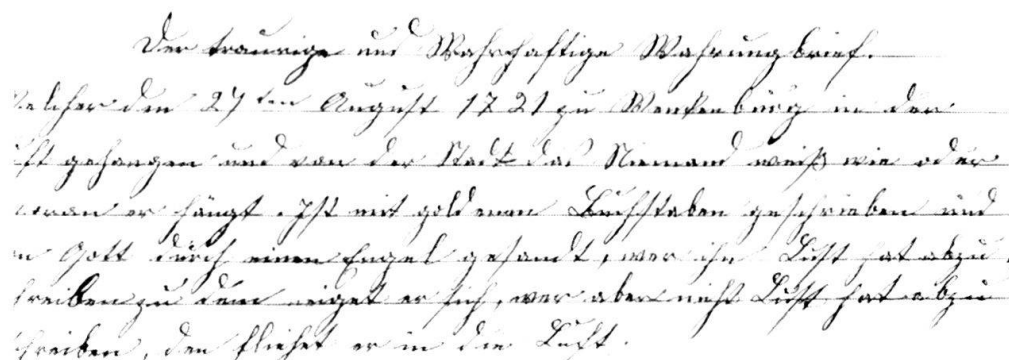 Der traurige und Wahrhaftige Wahrungbrief.
elcher den 27ten August 1721 zu in der
ft gehangen und von der Stadt das Niemand weiß wie oder
woran er hängt. Ist mit goldenen Buchstaben geschrieben und
n Gott durch einen Engel gesandt, wer ihn Lust hat abzu
hreiben zu dem neiget er sich, wer aber nicht Lust hat abzu
hreiben, den fliehet er in die Luft.